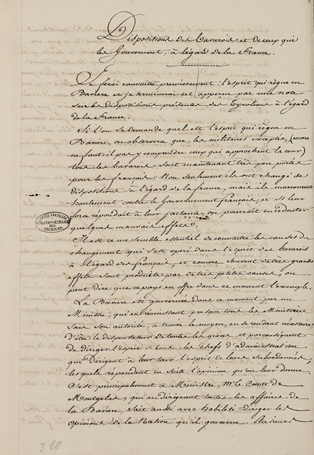 Dispositions des Bavarois et de ceux qui
les Gouvernent, à l'égard de la France.
Je ferai connaître premièrement l'esprit qui règne en
Bavière et je terminerai cet apperçu par une note
sur les dispositions présentes des Tyroliens à l'égard
de la France.
Si l'on se demande quel est l'esprit qui règne en
Bavière, on observera que, les militaires exceptés, (encore
en faut-il pas y comprendre ceux qui approchent la cour)
tous les bavarois sont maintenant très peu portés
pour les français. Non seulement ils ont changé de
dispositions à l'égard de la france, mais ils murmurent
hautement contre le Gouvernement français, et si leur
force répondait à leur jactance on pourrait en redouter
quelque mauvais effet.
Il est ce me semble utile de connaître les causes du
changement qui s'est opéré dans l'esprit des bavarois
à l'égard des français, et comme souvent de très grands
effets sont produits par de très petites causes, on
peut dire que ce pays en offre dans ce moment l'exemple.
La Bavière est gouvernée dans ce moment par un
Ministre, qui en réunissant presque tous les Ministères
sous son autorité, a trouvé le moyen, en se rendant nécessaire,
d'être le dispensateur de toutes les grâces et par conséquent
de diriger l'esprit de tous les chefs d'administration
qui dirigent à leur tour l'esprit de leurs Subordonnés
lesquels répandent en suite l'opinion qu'on leur donne.
C'est principalement ce Ministre, Mr. le Comte de
Montgelas, qui en dirigeant toutes les affaires de
la Bavière, sait aussi avec habileté diriger les
opinions de la Nation qu'il gouverne.